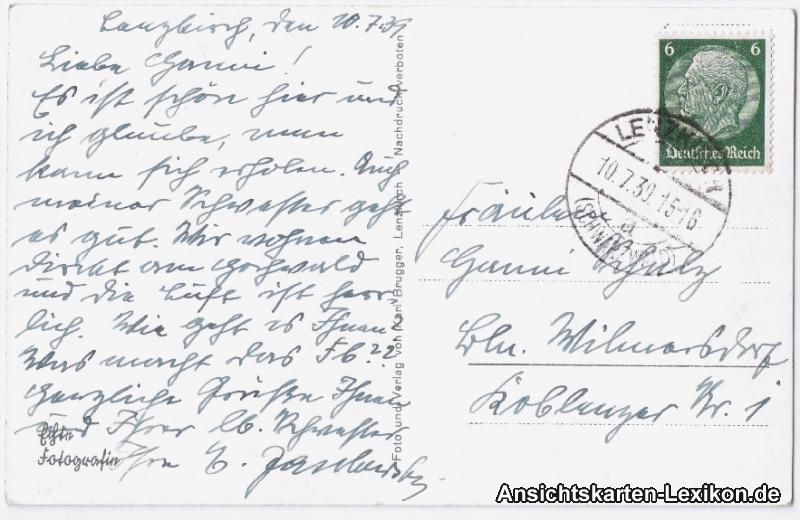 Lenzkirch, den 10.7.39
Liebe Hanni!
Es ist schön hier und
ich glaube, man
kann sich erholen. Auch
meiner Schwester geht
es gut. Wir wohnen
direkt am Hochwald
und die Luft ist herr-
lich. Wie geht es Ihnen?
Was macht das Fb??
Herzliche Grüße Ihnen
und Ihrer lb. Schwester
Ihre
Echte
Fotografie
Foto und Verlag von Karl Brugger, Lenzkirch Nachdruck verboten
6 6
Deutsches Reich
LENZKIRCH
10.7.39.15-16
a
(SCHWARZWALD)
Fräulein
Hanni Schulz
Bln. Wilmersdorf
Koblenzer Str. 1
Ansichtskarten-Lexikon.de